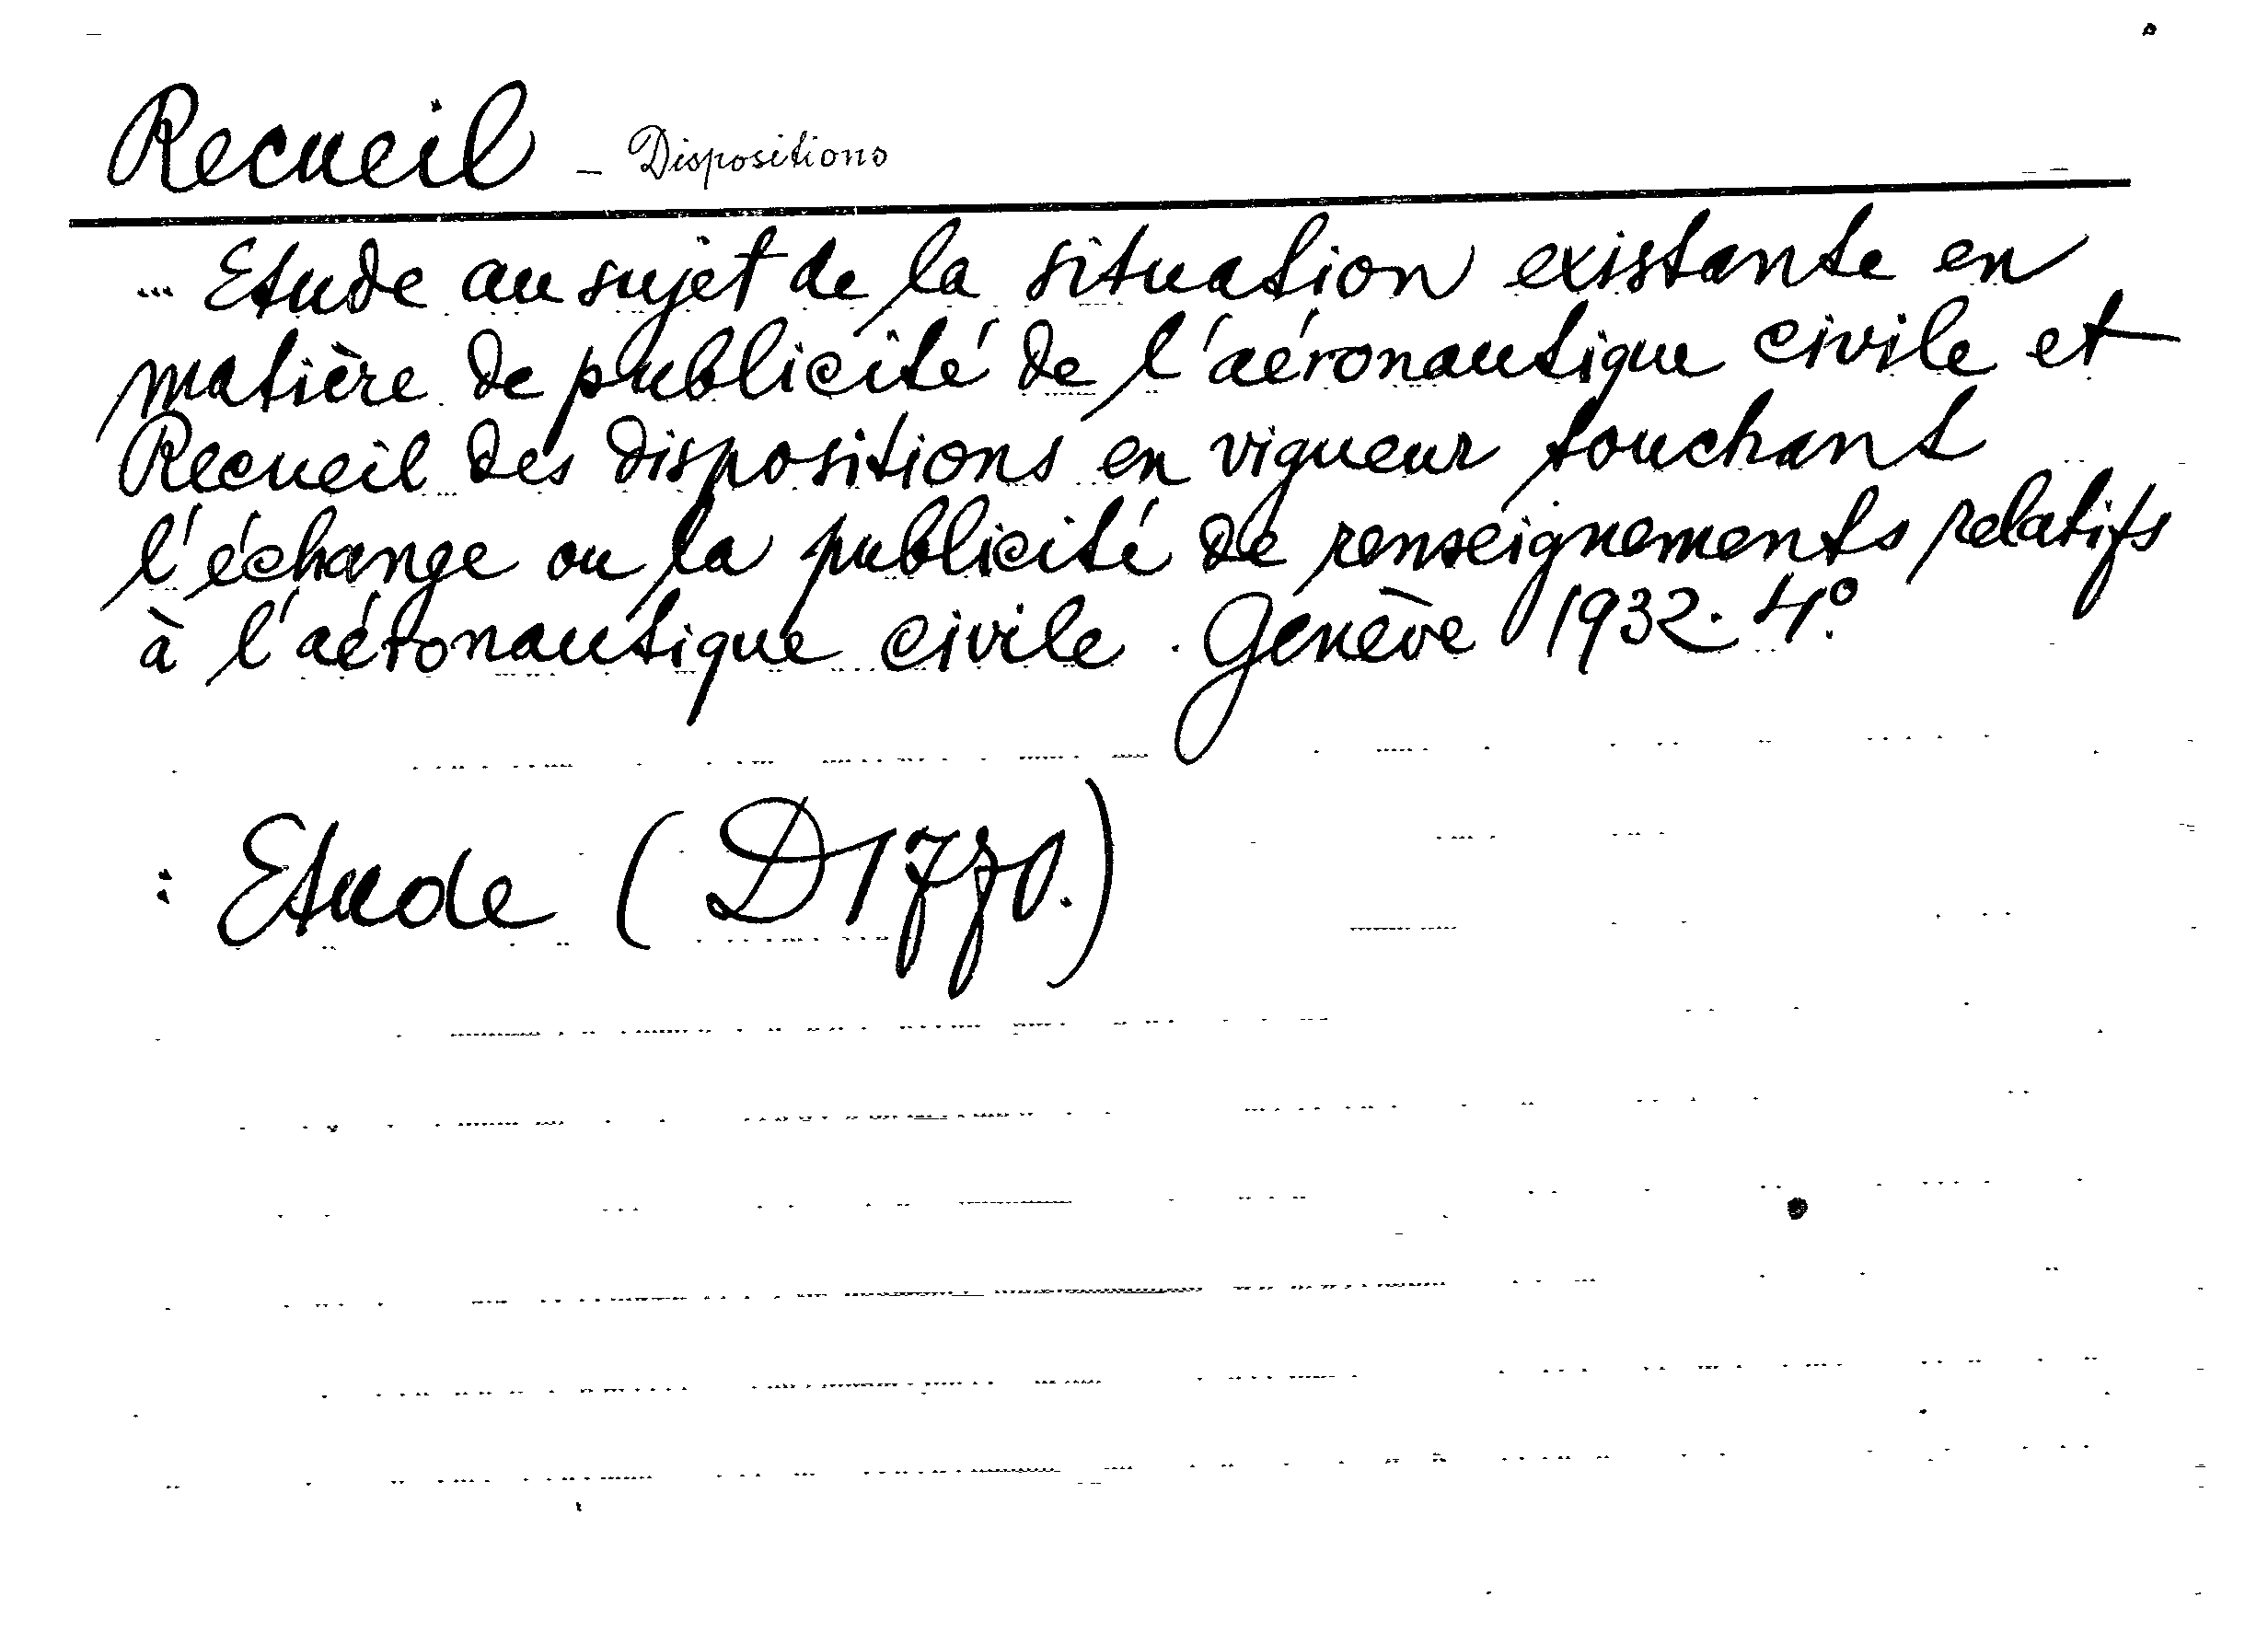 Recueil - Dispositions
... Etude au sujet de la situation existante en
matière de publicité de l'aéronautique civile et
Recueil des dispositions en vigueur touchant
l'échange ou la publicité de renseignements relatifs
à l'aéronautique civile. Genève 1932. 4°.
: Etude (D1770.)